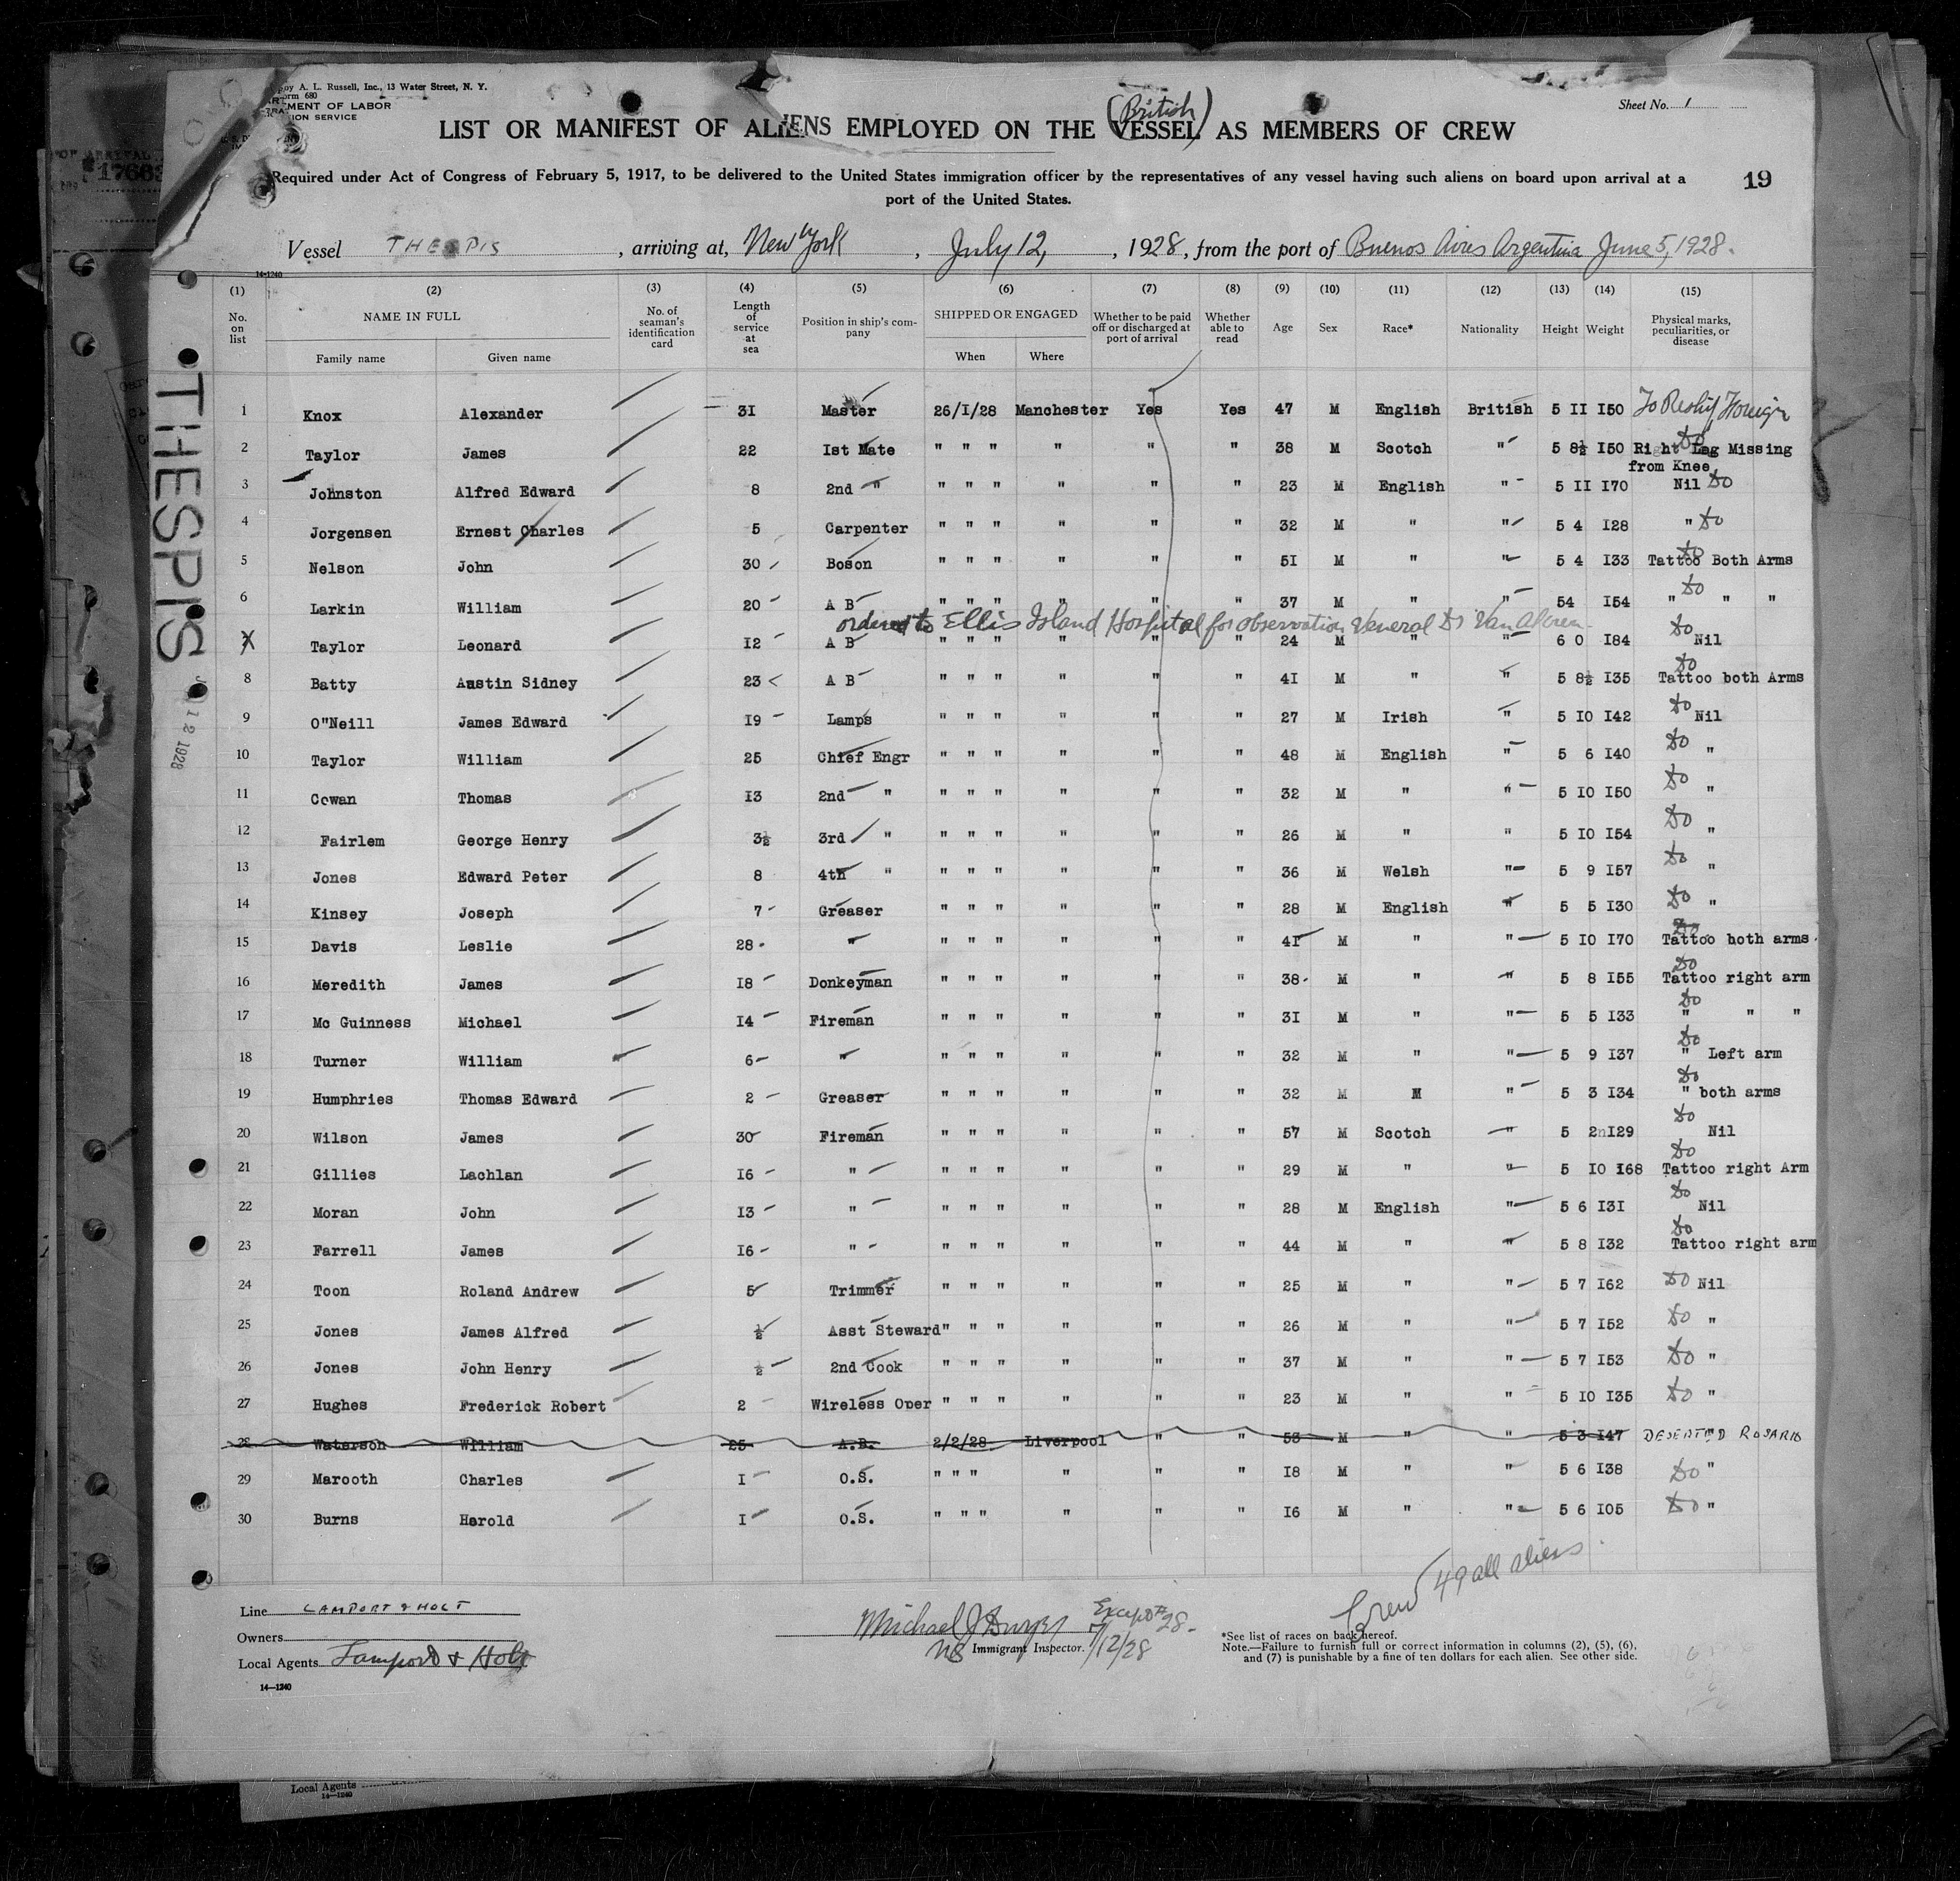 by A. L. Russell, Inc., 13 Water Street, N. Y.
Form 680
MENT OF LABOR
ION SERVICE
Sheet No. 1
(British)
LIST OR MANIFEST OF ALIENS EMPLOYED ON THE VESSEL AS MEMBERS OF CREW
Required under Act of Congress of February 5, 1917, to be delivered to the United States immigration officer by the representatives of any vessel having such aliens on board upon arrival at a
port of the United States.
19
17663
Vessel THESPIS, arriving at, New York, July 12, 1928, from the port of Buenos Aires Argentina June 5, 1928.
14-1240
(1) (2) (3) (4) (5) (6) (7) (8) (9) (10) (11) (12) (13) (14) (15)
No. on list | NAME IN FULL | No. of seaman's identification card | Length of service at sea | Position in ship's company | SHIPPED OR ENGAGED | Whether to be paid off or discharged at port of arrival | Whether able to read | Age | Sex | Race* | Nationality | Height | Weight | Physical marks, peculiarities, or disease
Family name | Given name | When | Where
THESPIS
12 1928
1 Knox Alexander 31 Master 26/1/28 Manchester Yes Yes 47 M English British 5 11 150 To Reship Foreign
2 Taylor James 22 1st Mate " " " " " " 38 M Scotch " 5 8½ 150 Do Right Leg Missing
from Knee
3 Johnston Alfred Edward 8 2nd " " " " " " " 23 M English " 5 11 170 Nil Do
4 Jorgensen Ernest Charles 5 Carpenter " " " " " " 32 M " " 5 4 128 " Do
5 Nelson John 30 Boson " " " " " " 51 M " " 5 4 133 Do Tattoo Both Arms
6 Larkin William 20 A B " " " " " " 37 M " " 54 154 Do " " "
ordered to Ellis Island Hospital for observation Veneral Dr
X Taylor Leonard 12 A B " " " " " " 24 M " " 6 0 184 Do Nil
8 Batty Austin Sidney 23 A B " " " " " " 41 M " " 5 8½ 135 Do Tattoo both Arms
9 O"Neill James Edward 19 Lamps " " " " " " 27 M Irish " 5 10 142 Do Nil
10 Taylor William 25 Chief Engr " " " " " " 48 M English " 5 6 140 Do "
11 Cowan Thomas 13 2nd " " " " " " " 32 M " " 5 10 150 Do "
12 Fairlem George Henry 3½ 3rd " " " " " " " 26 M " " 5 10 154 Do "
13 Jones Edward Peter 8 4th " " " " " " " 36 M Welsh " 5 9 157 Do "
14 Kinsey Joseph 7 Greaser " " " " " " 28 M English " 5 5 130 Do "
15 Davis Leslie 28 " " " " " " " 41 M " " 5 10 170 Do Tattoo both arms
16 Meredith James 18 Donkeyman " " " " " " 38 M " " 5 8 155 Do Tattoo right arm
17 Mc Guinness Michael 14 Fireman " " " " " " 31 M " " 5 5 133 Do " " "
18 Turner William 6 " " " " " " " 32 M " " 5 9 137 Do " Left arm
19 Humphries Thomas Edward 2 Greaser " " " " " " 32 M M " 5 3 134 Do " both arms
20 Wilson James 30 Fireman " " " " " " 57 M Scotch " 5 2 129 Do Nil
21 Gillies Lachlan 16 " " " " " " " 29 M " " 5 10 168 Do Tattoo right Arm
22 Moran John 13 " " " " " " " 28 M English " 5 6 131 Do Nil
23 Farrell James 16 " " " " " " " 44 M " " 5 8 132 Do Tattoo right arm
24 Toon Roland Andrew 5 Trimmer " " " " " " 25 M " " 5 7 162 Do Nil
25 Jones James Alfred ½ Asst Steward " " " " " " 26 M " " 5 7 152 Do "
26 Jones John Henry ½ 2nd Cook " " " " " " 37 M " " 5 7 153 Do "
27 Hughes Frederick Robert 2 Wireless Oper " " " " " " 23 M " " 5 10 135 Do "
28 Waterson William 25 A.B. 2/2/28 Liverpool " " 53 M " " 5 3 147 DESERTED ROSARIO
29 Marooth Charles 1 O.S. " " " " " " 18 M " " 5 6 138 Do "
30 Burns Harold 1 O.S. " " " " " " 16 M " " 5 6 105 Do "
Crew 49 all aliens.
Line LAMPORT & HOLT
Owners
Local Agents Lamport & Holt
14—1240
Michael J Dwyer Except #28.
Immigrant Inspector. 7/12/28
*See list of races on back hereof.
Note.—Failure to furnish full or correct information in columns (2), (5), (6),
and (7) is punishable by a fine of ten dollars for each alien. See other side.
Local Agents
14—1240